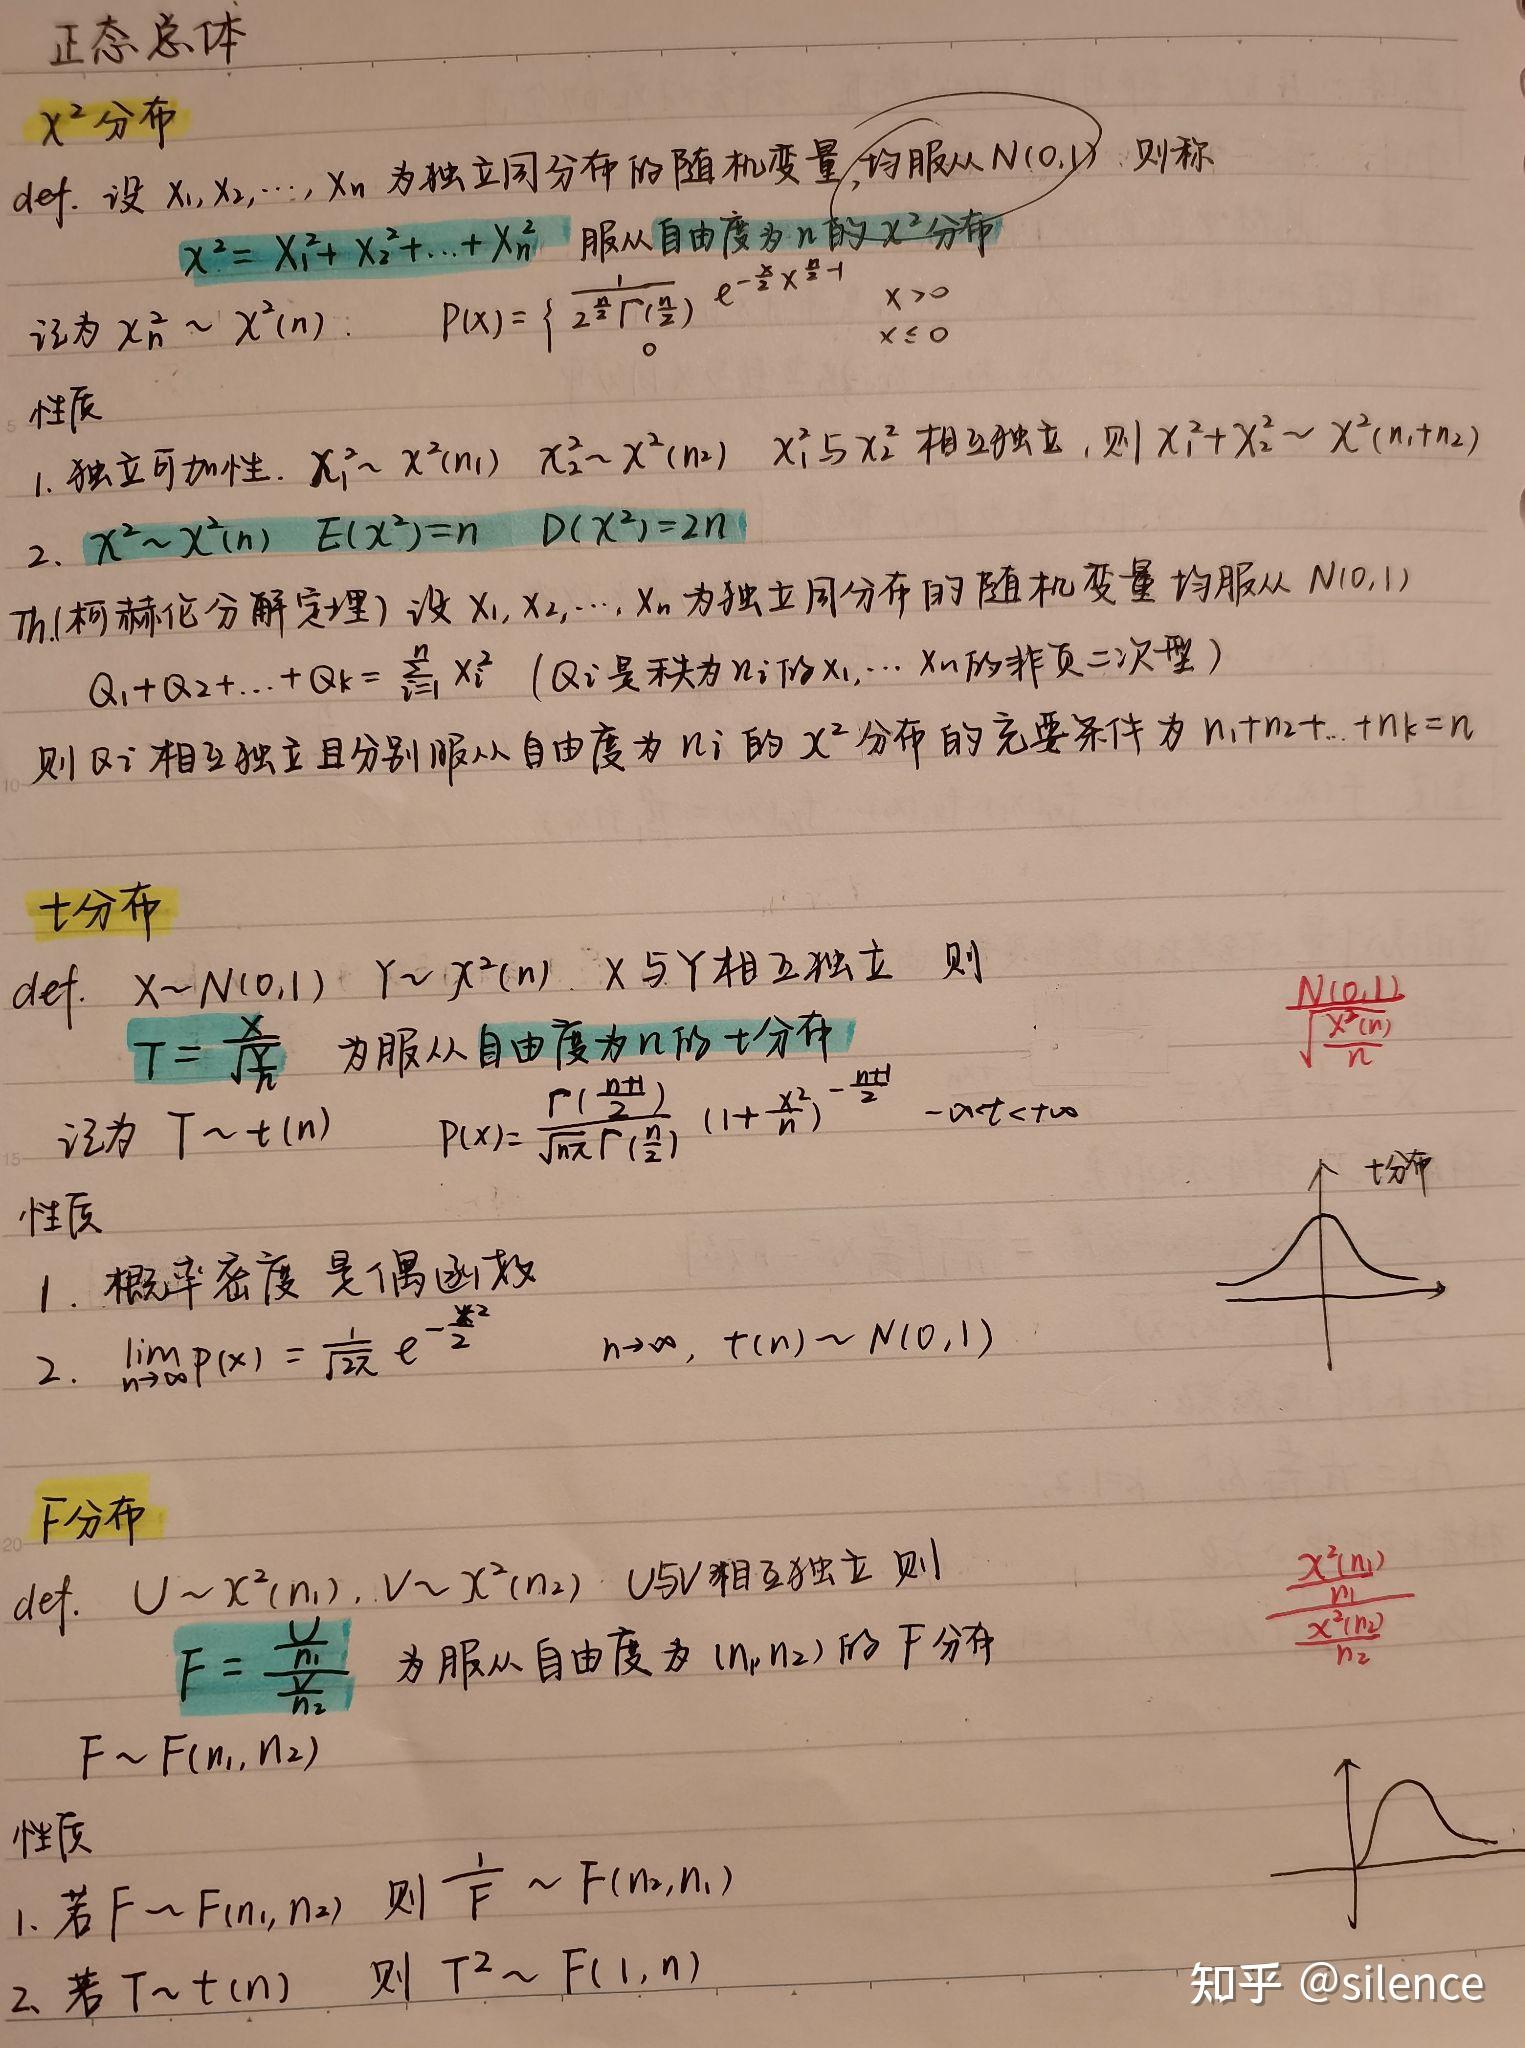 正态总体
χ²分布
def. 设 X₁, X₂, ⋯, Xn 为独立同分布的随机变量, 均服从 N(0,1) 则称
χ² = X₁² + X₂² + ⋯ + Xn² 服从自由度为n的χ²分布
记为 χn² ~ χ²(n). P(x) = { 1/(2^(n/2) Γ(n/2)) e^(-x/2) x^(n/2 -1) x>0
0 x≤0
性质
1. 独立可加性. χ₁² ~ χ²(n₁) χ₂² ~ χ²(n₂) χ₁²与χ₂² 相互独立, 则 χ₁²+χ₂² ~ χ²(n₁+n₂)
2. χ² ~ χ²(n) E(χ²)=n D(χ²)=2n
Th.(柯赫伦分解定理) 设 X₁, X₂, ⋯, Xn 为独立同分布的随机变量 均服从 N(0,1)
Q₁+Q₂+⋯+Qk = Σ(i=1→n) Xi² (Qi是秩为ni的X₁, ⋯ Xn的非负二次型)
则Qi相互独立且分别服从自由度为ni的χ²分布的充要条件为 n₁+n₂+⋯+nk=n
t分布
def. X~N(0,1) Y~χ²(n). X与Y相互独立 则
T = X/√(Y/n) 为服从自由度为n的t分布
N(0,1)/√(χ²(n)/n)
记为 T~t(n) P(x) = Γ((n+1)/2)/(√(nπ) Γ(n/2)) (1+x²/n)^(-(n+1)/2) -∞<t<+∞
t分布
性质
1. 概率密度是偶函数
2. lim(n→∞) P(x) = 1/√(2π) e^(-x²/2) n→∞, t(n)~N(0,1)
F分布
def. U~χ²(n₁), V~χ²(n₂) U与V相互独立 则
F = (U/n₁)/(V/n₂) 为服从自由度为(n₁,n₂)的F分布
(χ²(n₁)/n₁)/(χ²(n₂)/n₂)
F~F(n₁,n₂)
性质
1. 若F~F(n₁,n₂) 则 1/F ~ F(n₂,n₁)
2. 若T~t(n) 则 T² ~ F(1,n)
知乎 @silence